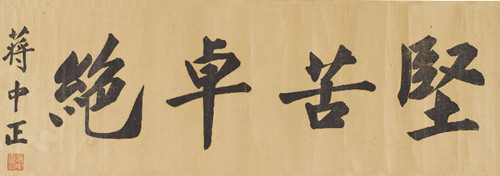 堅苦卓絕
蔣中正